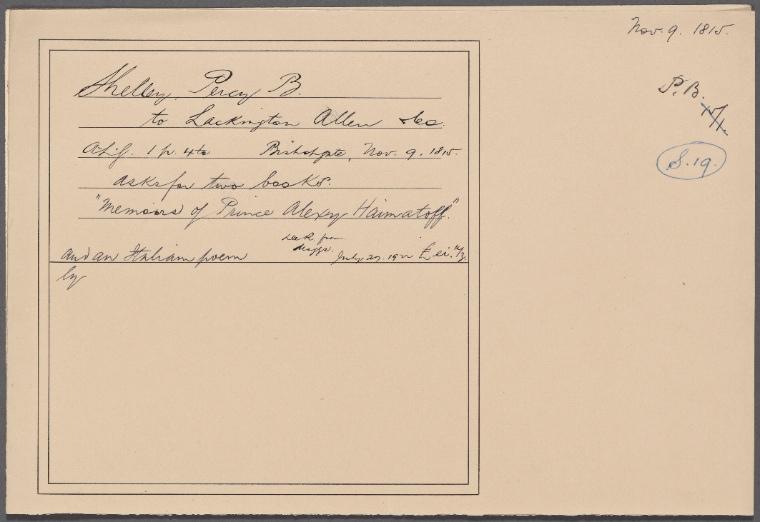 Nov. 9. 1815.
P.B.
S.19.
Shelley, Percy B.
to Lackington Allen & Co.
1 p. 4to Bishopgate, Nov. 9. 1815.
asks for two books.
"Memoirs of Prince Alexy Haimatoff."
and an Italian poem
Rec'd from
Maggs. July 27. 19
by